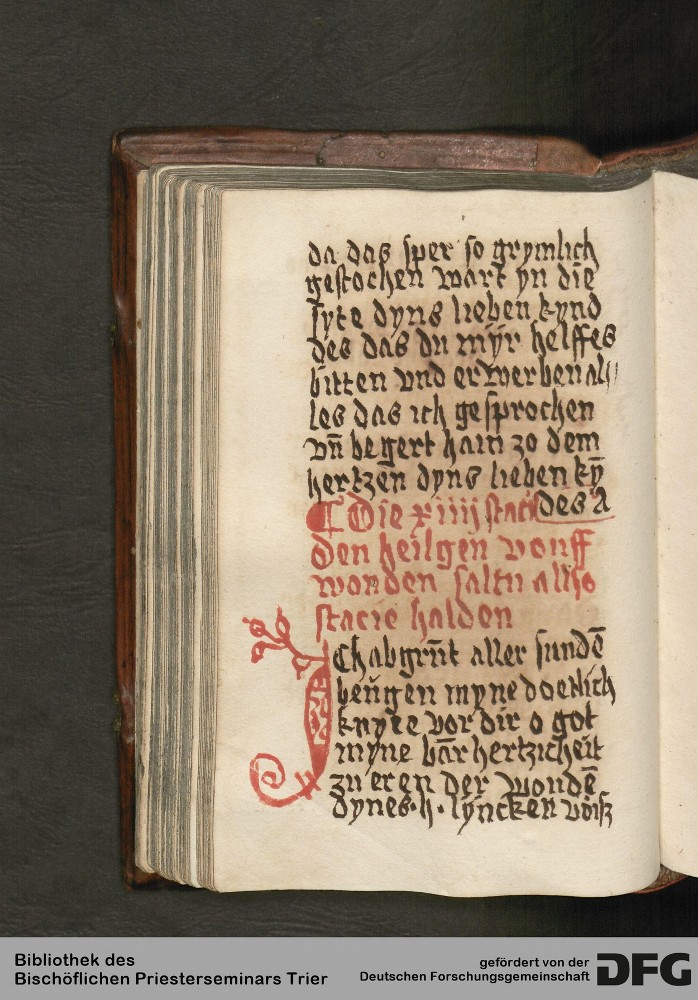 da das sper so grymlich
gestochen wart yn die
syte dyns lieben kynd
des das du myr helffes
bitten vnd erwerben al
les das ich gesprochen
vn̄ begert hain zo dem
hertzen dyns lieben kȳ
des A
Die xiiij stacie
den heilgen vonff
wonden saltu also
stacie halden
Ich abgrūt aller sundē
beugen myne doetlich
knyee vor dir o got
myne barhertzicheit
zu eren der wondē
dynes · h · lyncken voiß
Bibliothek des
Bischöflichen Priesterseminars Trier
gefördert von der
Deutschen Forschungsgemeinschaft
DFG